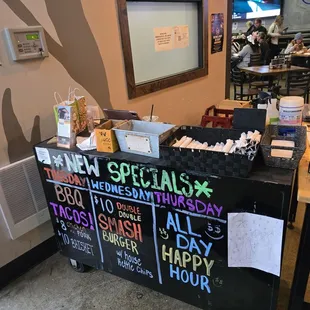 *NEW SPECIALS*
TUESDAY
BBQ
TACOS!
PORK
$10 BRISKET
WEDNESDAY
$10 DOUBLE
DOUBLE
SMASH
BURGER
w/ house
Kettle Chips
THURSDAY
ALL
DAY
HAPPY
HOUR